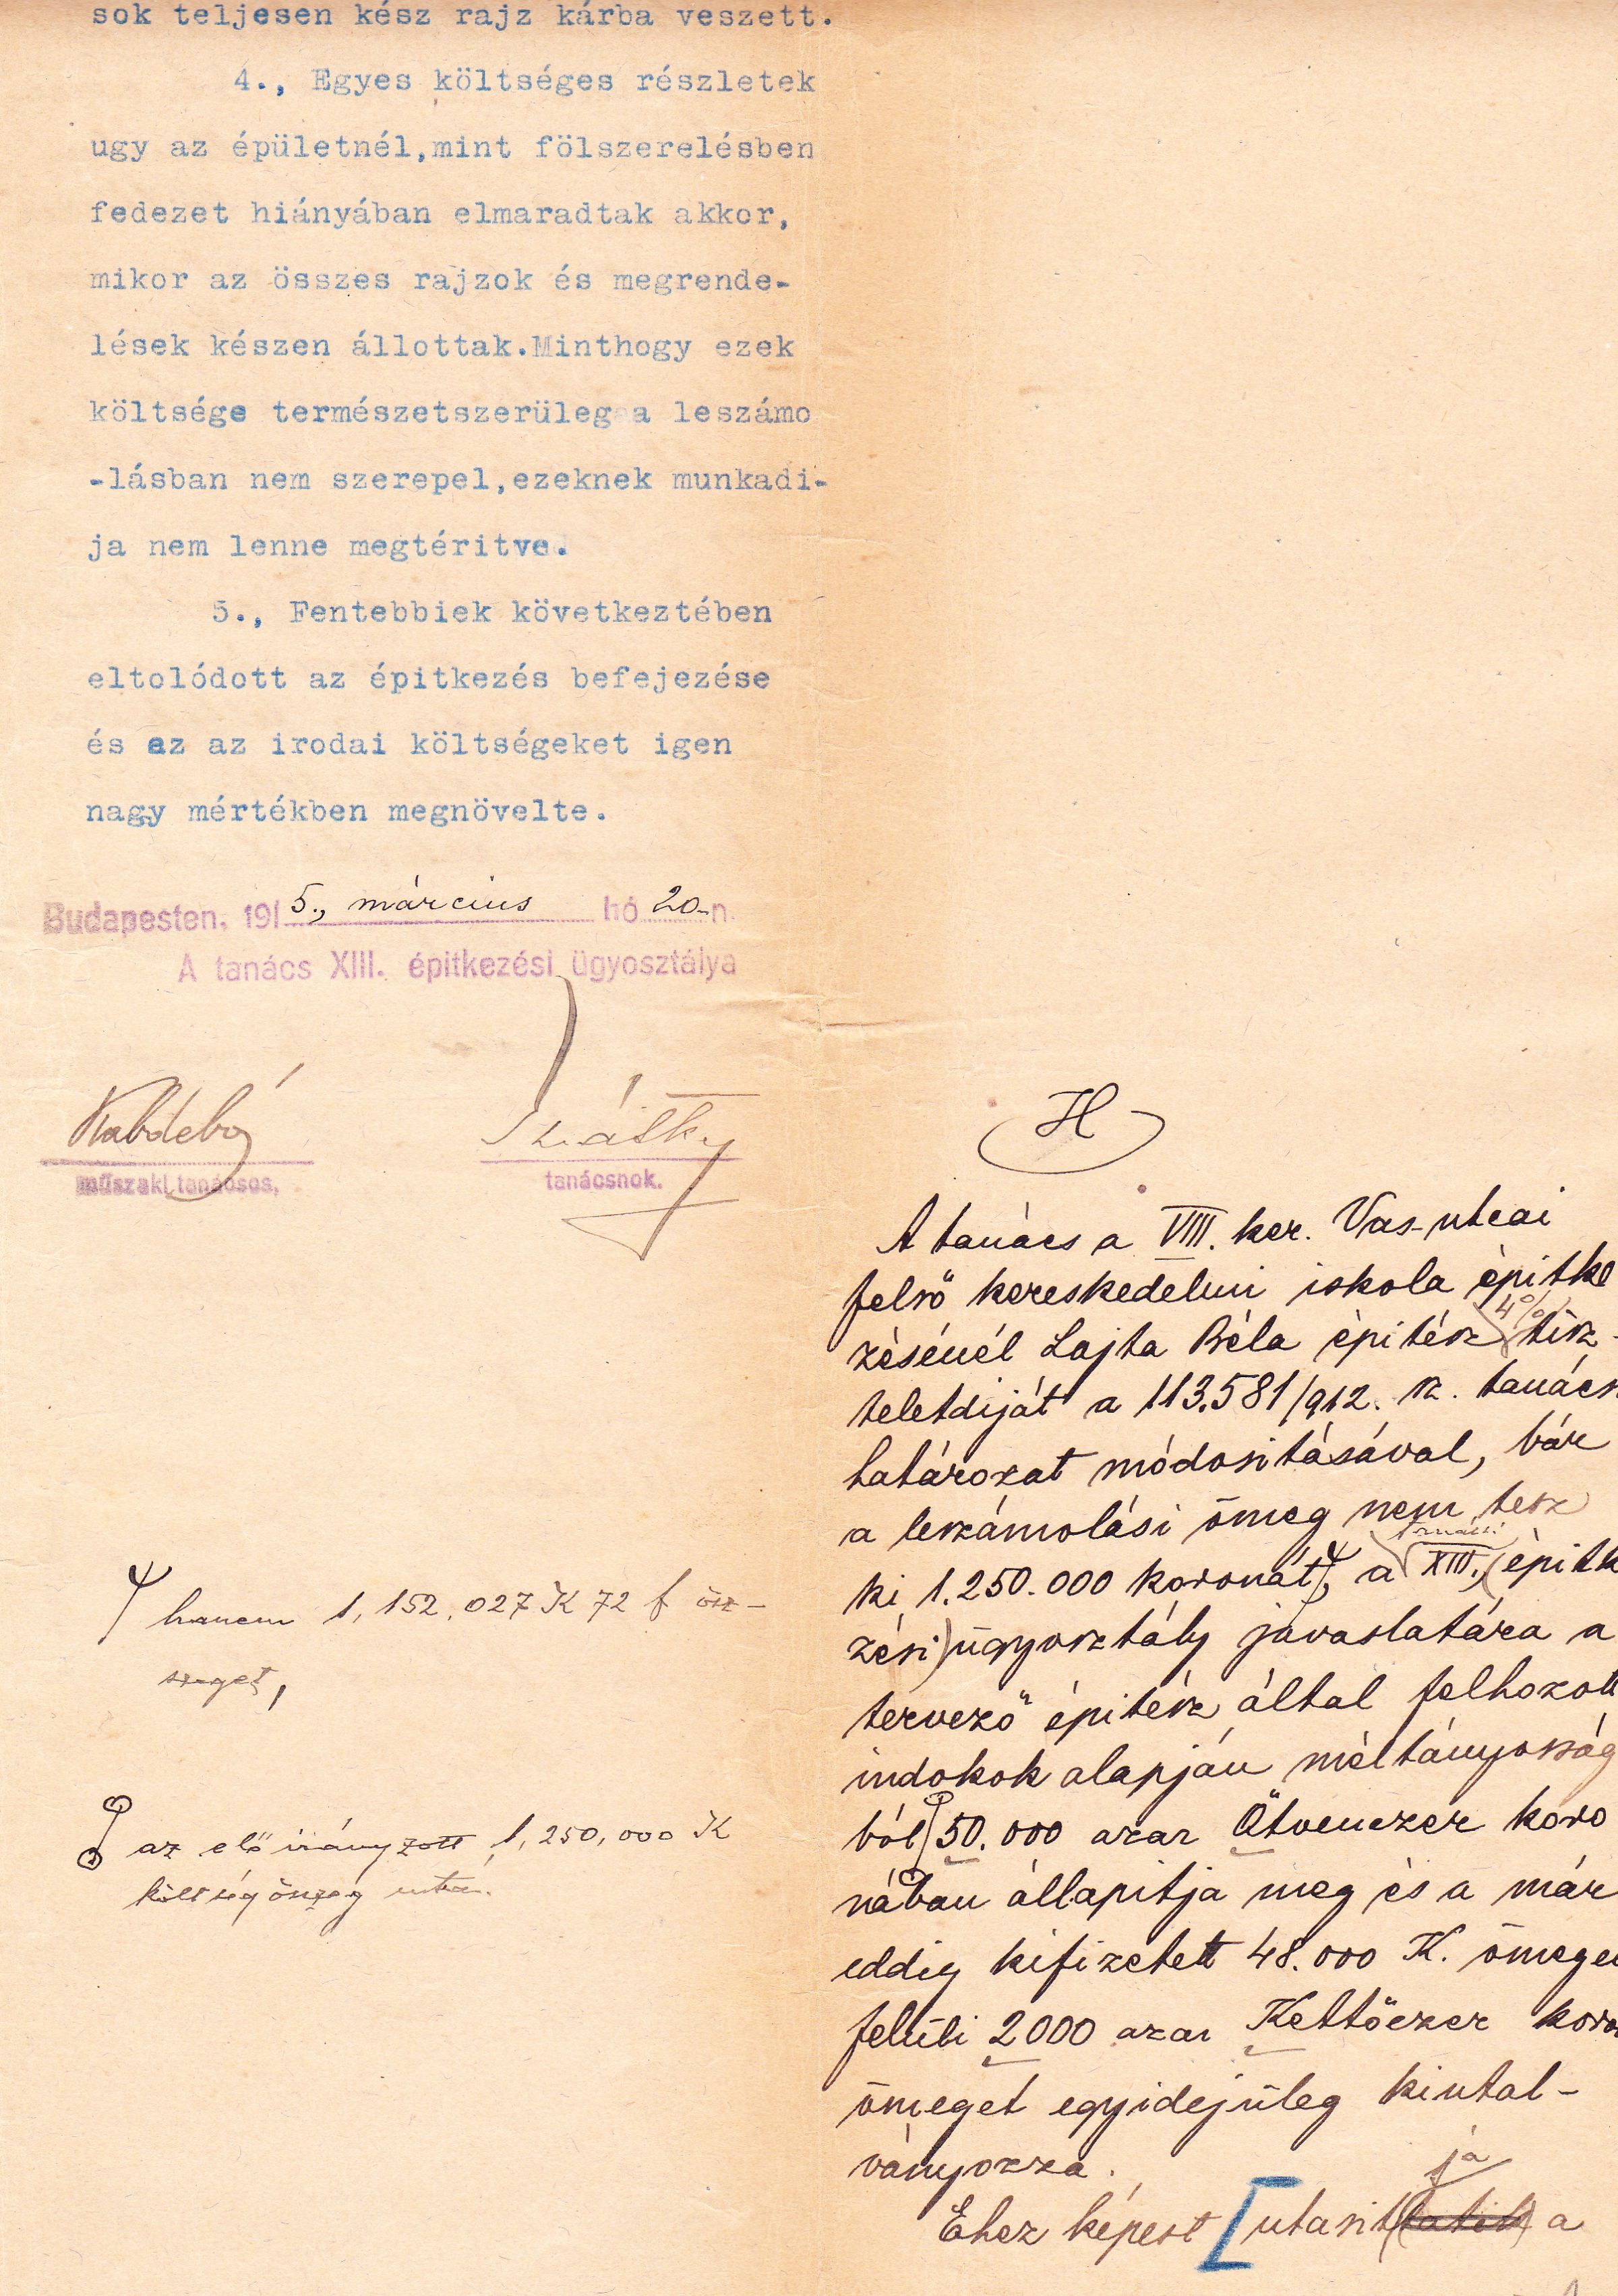 sok teljesen kész rajz kárba veszett.
4., Egyes költséges részletek
ugy az épületnél,mint fölszerelésben
fedezet hiányában elmaradtak akkor,
mikor az összes rajzok és megrende-
lések készen állottak.Minthogy ezek
költsége természetszerüleg a leszámo
-lásban nem szerepel,ezeknek munkadi-
ja nem lenne megtéritve.
5., Fentebbiek következtében
eltolódott az épitkezés befejezése
és az az irodai költségeket igen
nagy mértékben megnövelte.
Budapesten, 1915., március hó 20-n.
A tanács XIII. épitkezési ügyosztálya
Kabdebó
műszaki tanácsos,
tanácsnok.
hanem 1,152,027 K 72 f ösz-
szeget,
az előirányzott 1,250,000 K
költségösszeg után.
H
A tanács a VIII. ker. Vas-utcai
felső kereskedelmi iskola épitke
zésénél Lajta Béla épitész 4% tisz-
teletdiját a 113.581/912. sz. tanács
határozat módositásával, bár
a leszámolási összeg nem tesz
ki 1.250.000 koronát, a tanácsi XIII. (épitk
zési) ügyosztály javaslatára a
tervező épitész által felhozott
indokok alapján méltányosság
ból 50.000 azaz Ötvenezer koro
nában állapitja meg és a már
eddig kifizetett 48.000 K. összegen
felüli 2000 azaz Kettőezer koro
összeget egyidejüleg kiutal-
ványozza.
Ehez képest [utasit(tatik) ja a